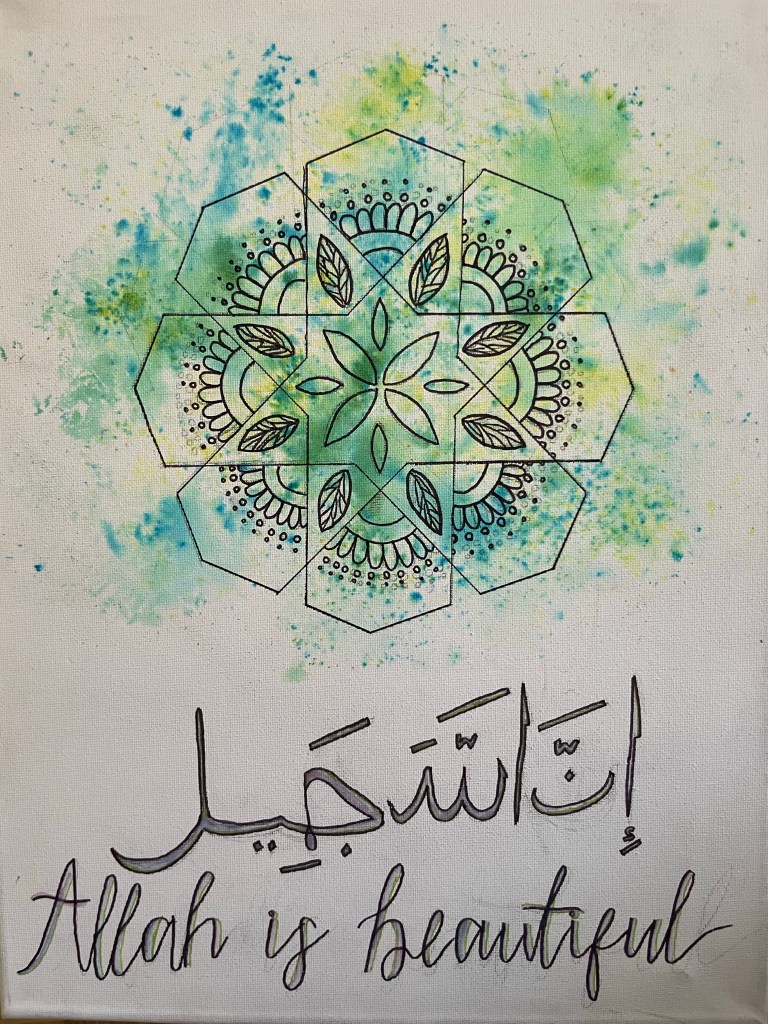 إِنَّ اللَّهَ جَمِيل
Allah is beautiful